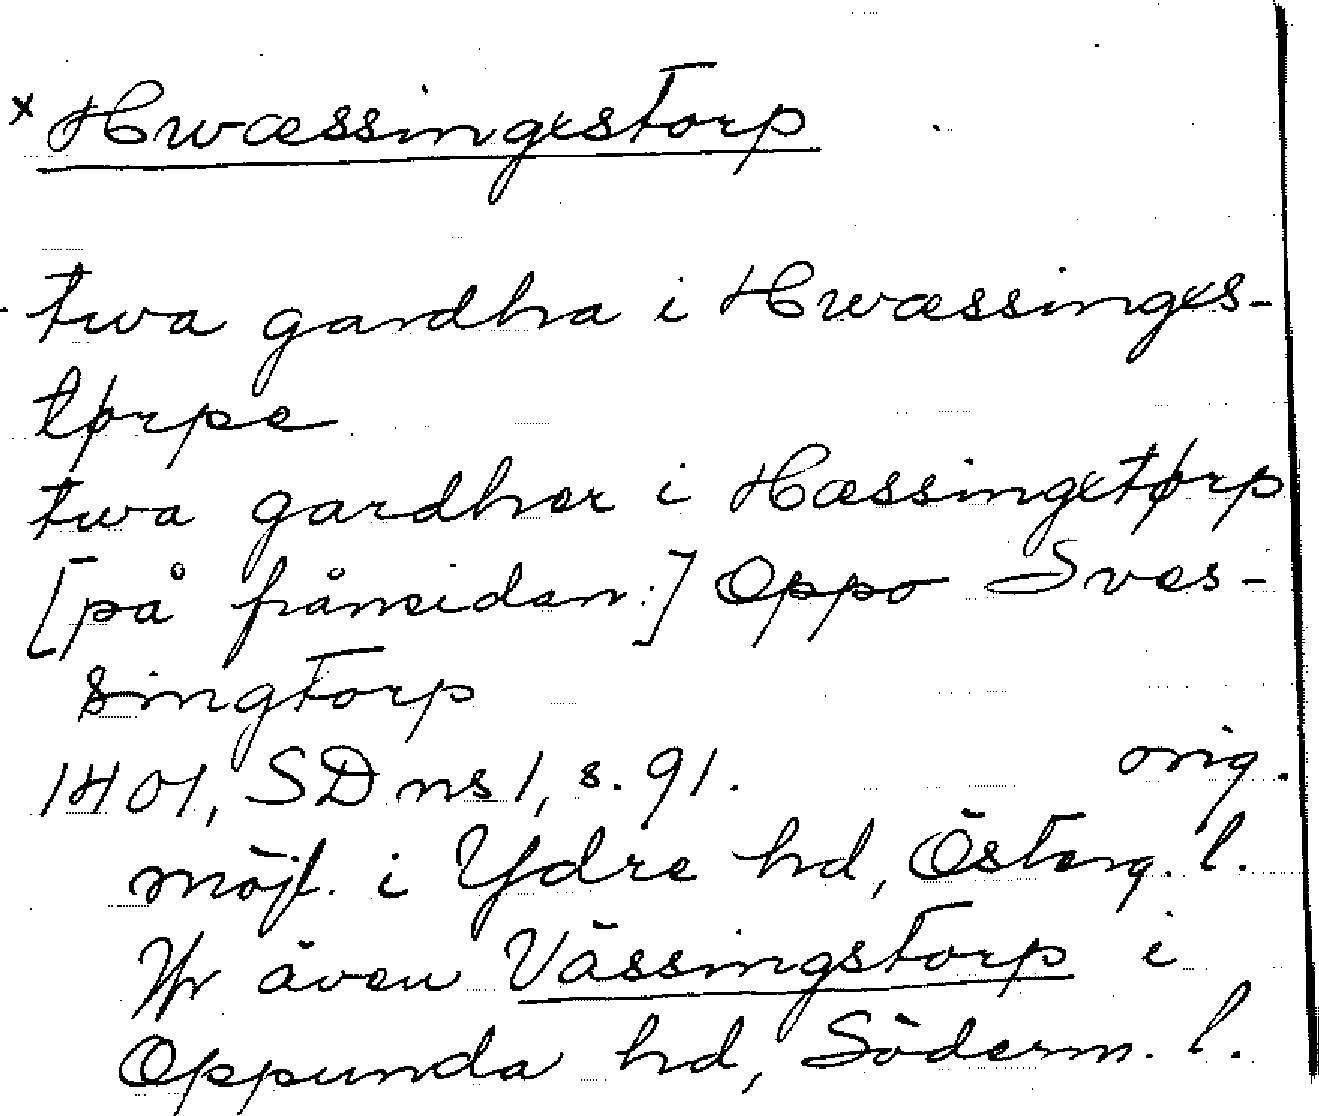 × Hwæssingxstorp
twa gardha i Hwæssingxs-
tørpe
twa gardher i Hæssingxtørp
[på frånsidan:] Oppo Sves-
singtorp
1401, SD ns 1, s. 91. orig.
möjl. i Ydre hd, Österg. l.
Jfr även Vässingstorp i
Oppunda hd, Söderm. l.